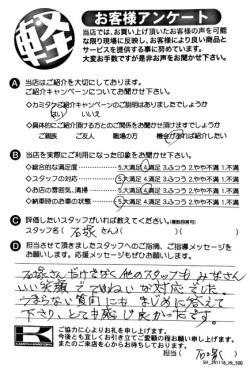 軽
お客様アンケート
当店では、お買い上げ頂いたお客様の声を可能
な限り現場に反映し、お客様により良い商品と
サービスを提供する事に努めています。
大変お手数ですが是非お声をお聞かせ下さい。
A 当店はご紹介を大切にしております。
ご紹介キャンペーンについてお聞かせ下さい。
◇カミタケご紹介キャンペーンのご説明はありましたでしょうか
はい いいえ
◇具体的にご紹介頂ける方とのご関係をお聞かせ頂けますでしょうか
ご親族 ご友人 職場の方 機会が有れば紹介したい
B 当店を実際にご利用になった印象をお聞かせ下さい。
◇総合的な満足度 5.大満足 4.満足 3.ふつう 2.やや不満 1.不満
◇スタッフの対応 5.大満足 4.満足 3.ふつう 2.やや不満 1.不満
◇お店の雰囲気、清掃 5.大満足 4.満足 3.ふつう 2.やや不満 1.不満
◇納車時のお車の状態 5.大満足 4.満足 3.ふつう 2.やや不満 1.不満
C 評価したいスタッフがいれば教えてください。(複数回答可)
スタッフ名( 石塚 さん)( )( )
D 担当させて頂きましたスタッフへのご指摘、ご指導メッセージを
お願いします。応援メッセージもぜひお願いします!
石塚さんだけでなく、他のスタッフも みなさん
いい笑顔で ていねいな対応でした。
つまらない質問にも まじめに答えて
下さり、とても感じ良かったです。
K
ご協力に心よりお礼を申し上げます。
今後とも宜しくお引き立てご愛顧の程お願い申し上げます。
またのご来店を心からお待ちしております。
担当( 石塚 )